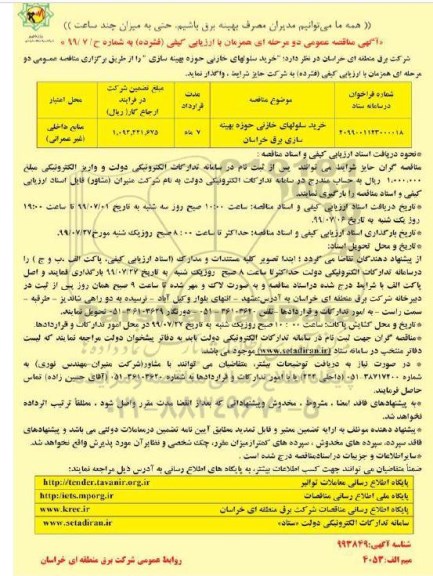 (( همه ما می‌توانیم مدیران مصرف بهینه برق باشیم، حتی به میزان چند ساعت ))
«آگهی مناقصه عمومی دو مرحله ای همزمان با ارزیابی کیفی (فشرده) به شماره ج/ ۷ /۹۹»
شرکت برق منطقه ای خراسان در نظر دارد: "خرید سلولهای خازنی حوزه بهینه سازی " را از طریق برگزاری مناقصه عمومی دو
مرحله ای همزمان با ارزیابی کیفی (فشرده) به شرکت حایز شرایط ، واگذار نماید.
شماره فراخوان درسامانه ستاد
موضوع مناقصه
مدت قرارداد
مبلغ تضمین شرکت در فرایند ارجاع کار( ریال)
محل اعتبار
۲۰۹۹۰۰۱۱۲۳۰۰۰۰۱۸
خرید سلولهای خازنی حوزه بهینه سازی برق خراسان
۷ ماه
منابع داخلی (غیر عمرانی)
*نحوه دریافت اسناد ارزیابی کیفی و اسناد مناقصه :
مناقصه گران حایز شرایط می توانند پس از ثبت نام در سامانه تدارکات الکترونیکی دولت و واریز الکترونیکی مبلغ
۱,۰۰۰,۰۰۰ ریال به حساب مندرج در سامانه تدارکات الکترونیکی دولت به نام شرکت منیران (مشاور) فایل اسناد ارزیابی
کیفی و اسناد مناقصه را بارگیری نمایند.
*تاریخ دریافت اسناد ارزیابی کیفی و اسناد مناقصه: ساعت ۱۰:۰۰ صبح روز سه شنبه به تاریخ ۹۹/۰۷/۰۱ تا ساعت ۱۹:۰۰
روز یک شنبه به تاریخ ۹۹/۰۷/۰۶
*تاریخ بارگذاری اسناد ارزیابی کیفی و اسناد مناقصه: حداکثر تا ساعت ۸:۰۰ صبح روز یک شنبه مورخ ۹۹/۰۷/۲۷
*تاریخ و محل تحویل اسناد:
از پیشنهاد دهندگان تقاضا می گردد ؛ ابتدا تصویر کلیه مستندات و مدارک (اسناد ارزیابی کیفی، پاکت الف ،ب و ج ) را
درسامانه تدارکات الکترونیکی دولت حداکثر تا ساعت ۸ صبح روز یک شنبه به تاریخ ۹۹/۰۷/۲۷ بارگذاری نمایند و اصل
پاکت الف با شرایط درج شده در اسناد مناقصه و به صورت لاک و مهر شده تا ساعت ۹ صبح همان روز پس از ثبت در
دبیرخانه شرکت برق منطقه ای خراسان به آدرس:مشهد - انتهای بلوار وکیل آباد - نرسیده به دو راهی شاندیز - طرقبه -
*تاریخ و محل گشایش پاکات: ساعت ۱۰:۰۰ صبح روز یک شنبه به تاریخ ۹۹/۰۷/۲۷ در محل امور تدارکات و قراردادها.
*مناقصه گران جهت ثبت نام در سامانه تدارکات الکترونیکی دولت باید به دفاتر پیشخوان دولت مراجعه نمایند که لیست
دفاتر منتخب در سامانه ستاد (www.setadiran.ir) موجود می باشد
* در صورت نیاز به دریافت توضیحات بیشتر، متقاضیان می توانند با مشاور(شرکت منیران-مهندس نوری) به
حاصل فرمایند.
*به پیشنهادهای فاقد امضا ، مشروط ، مخدوش و پیشنهاداتی که بعد از انقضا مدت مقرر واصل شود ، مطلقاً ترتیب اثر داده
نخواهد شد.
*پیشنهاد دهنده موظف به ارایه تضمین معتبر و قابل تمدید مطابق آیین نامه تضمین در معاملات دولتی می باشد و پیشنهادهای
فاقد سپرده، سپرده های مخدوش ، سپرده های کمتر از میزان مقرر، چک شخصی و نظایر آن مورد پذیرش واقع نخواهد شد.
*سایر اطلاعات و جزییات در اسناد مناقصه درج شده است .
ضمناً متقاضیان می توانند جهت کسب اطلاعات بیشتر، به پایگاه های اطلاع رسانی به آدرس ذیل مراجعه نمایند:
پایگاه اطلاع رسانی معاملات توانیر http://tender.tavanir.org.ir
پایگاه ملی اطلاع رسانی مناقصات http://iets.mporg.ir
پایگاه اطلاع رسانی شرکت برق منطقه ای خراسان www.krec.ir
سامانه تدارکات الکترونیکی دولت «ستاد» www.setadiran.ir
شناسه آگهی: ۹۹۳۸۴۹
میم الف: ۴۰۵۳
روابط عمومی شرکت برق منطقه ای خراسان